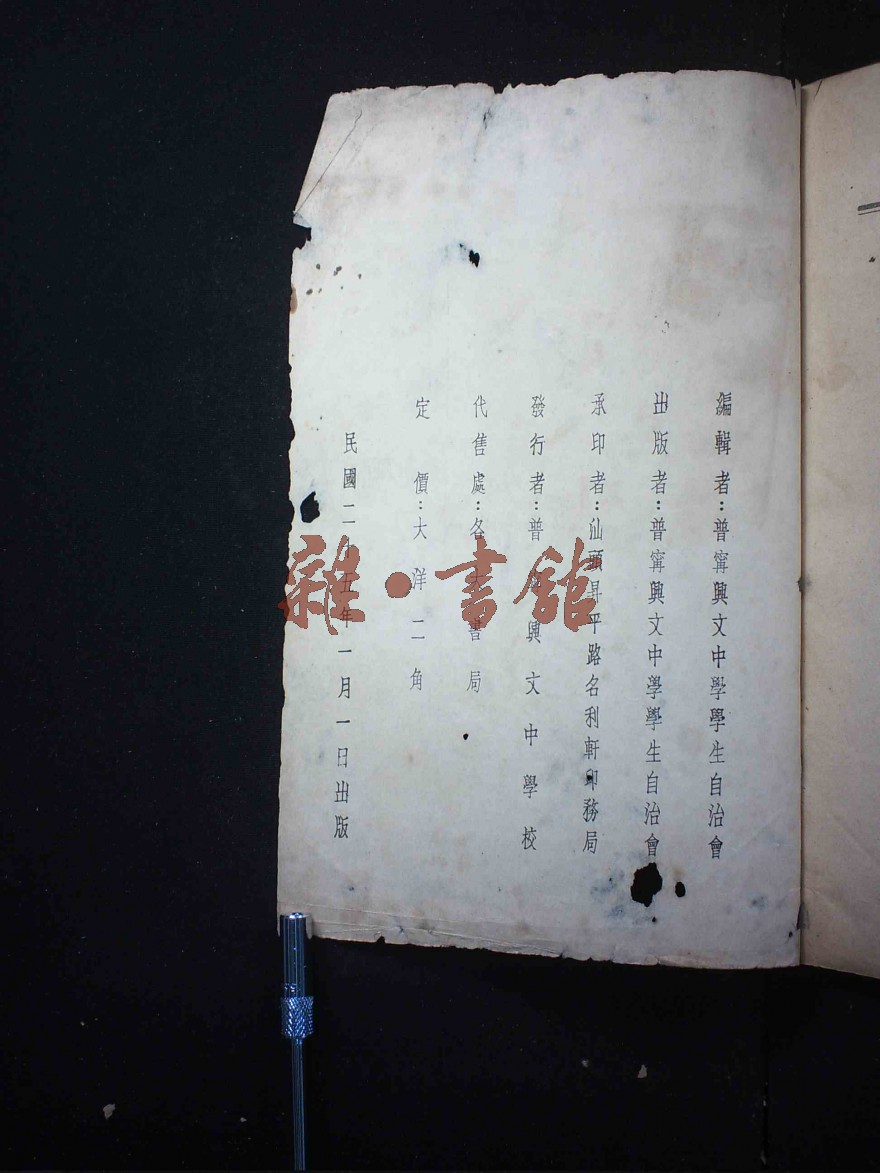 編輯者：普甯興文中學學生自治會
出版者：普甯興文中學學生自治會
承印者：汕頭昇平路名利軒印務局
發行者：普甯興文中學校
代售處：各大書局
定價：大洋二角
民國二十五年一月一日出版
雜·書館